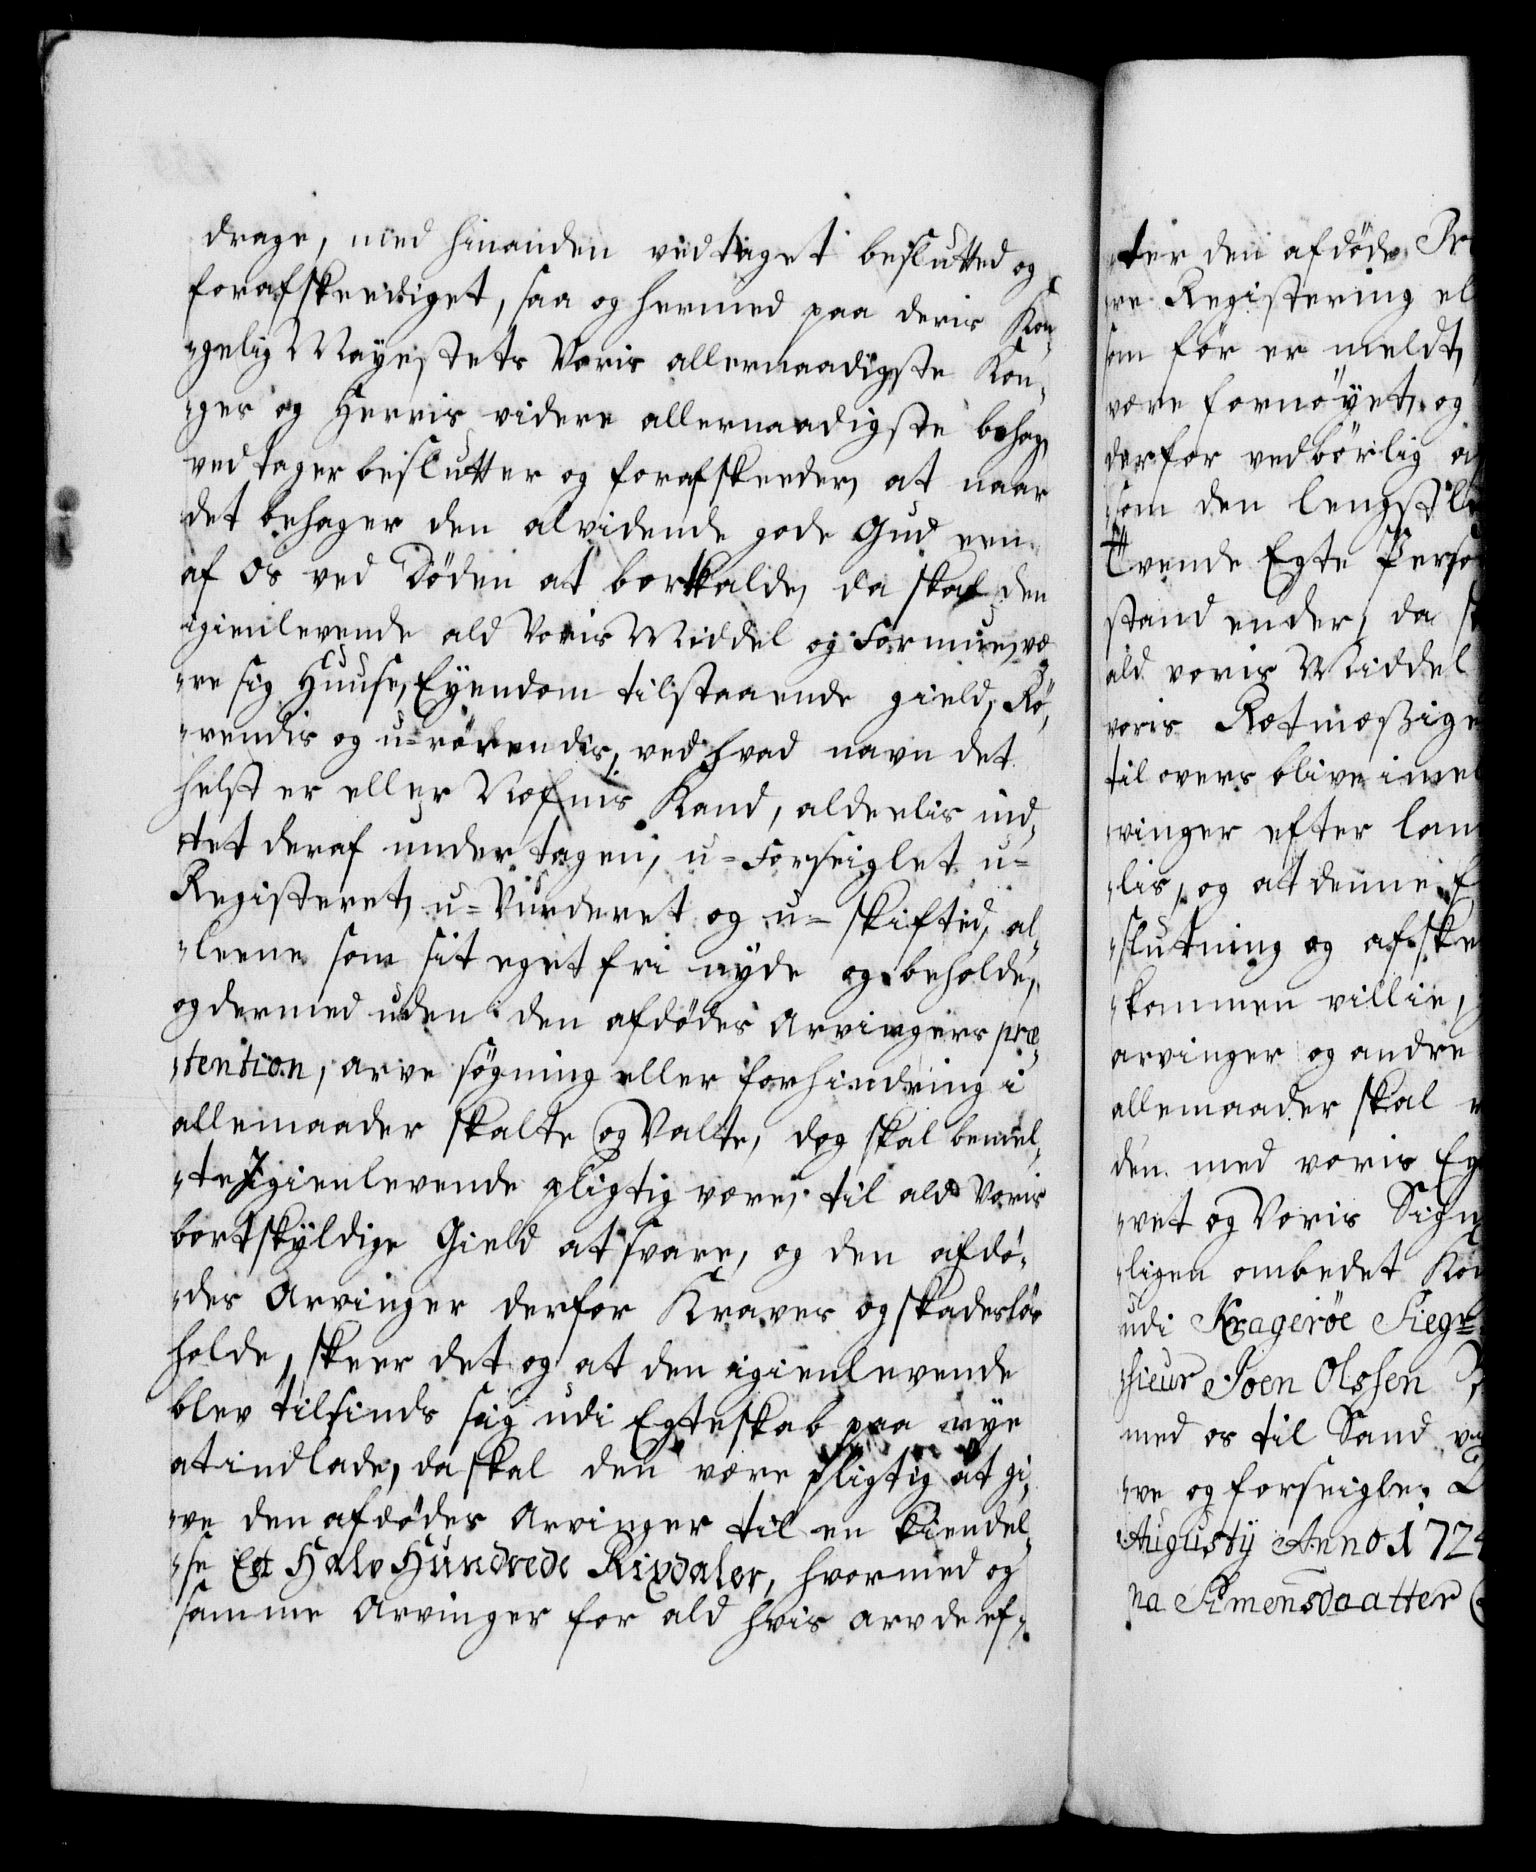 drage, med hinanden vedtaget beslutted og
forafskeediget, saa og hermed paa deris Kon¬
gelig Mayestets Voris allernaadigste Kon¬
ges og Herris videre allernaadigste behag,
vedtager beslutter og forafskeeder, at naar
det behager den alvidende gode Gud een
af Os ved Døden at bortkalde, da skal den
igienlevende ald Voris Middel og Formue, væ¬
re sig Huuse, Eyendom tilstaaende gield, Rø¬
rendis og u-rørendis, ved hvad navn det
helst er eller Næfnis Kand, aldeelis in¬
tet deraf undertagen, u-Forseiglet u-
Registeret, u-Vurderet og u-skifted, al¬
leene som sit eget fri nyde og beholde,
og dermed uden den afdødes Arvingers præ¬
tention, arve søgning eller forhindring i
allemaader skalte og Valte, dog skal bemel¬
te Igienlevende pligtig være, til ald Voris
bortskyldige Gield at svare, og den afdø¬
des Arvinger derfor Kraves og skadesløs
holde, skeer det og at den igienlevende
blev tilsinds sig udi Egteskab paa nye
at indlade, da skal den være pligtig at gi¬
ve den afdødes Arvinger til en Kiendel¬
se Et Halv Hundrede Rixdaler, hvormed og
samme Arvinger for ald hvis arv de ef¬
ter den afdøde
re Registering
som før er meldt,
være fornøyet, og
derfor vedbørlig
som den lengst
Tvende Egte
stand ender, da
ald voris Middel
voris Rætmæssige
til overs blive
vinger efter
lis, og at denne
slutning og
kommen villie,
arvinger og andre
allemaader skal
den med voris
vet og Voris
ligen ombedet
udi Kragerøe Siegr
sieur Joen Olssen
med os til Sand
ve og forseigle.
Augusty Anno 172
na Simensdaatter